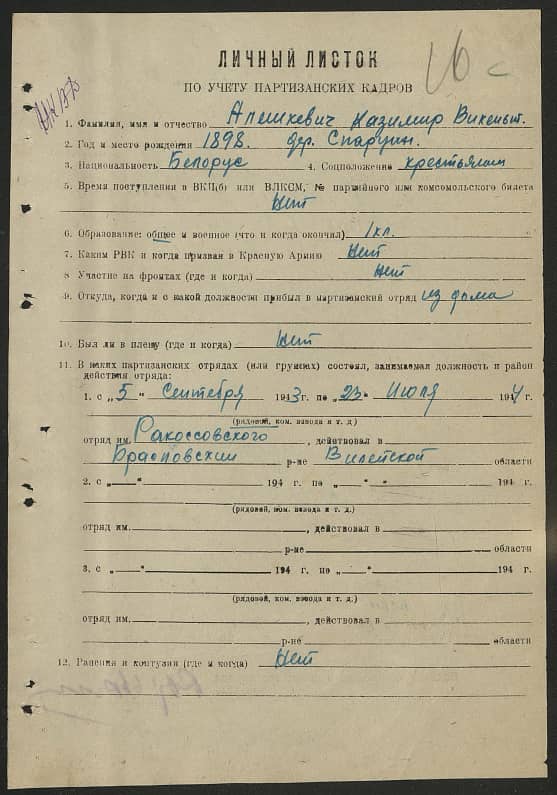 ЛИЧНЫЙ ЛИСТОК
ПО УЧЕТУ ПАРТИЗАНСКИХ КАДРОВ
1. Фамилия, имя и отчество Алешкевич Казимир Викеньт.
2. Год и место рождения 1898. дер. Спагуин.
3. Национальность Белорус 4. Соцположение крестьянин
5. Время поступления в ВКП(б) или ВЛКСМ, № партийного или комсомольского билета
Нет
6. Образование: общее и военное (что и когда окончил) 1 кл.
7. Каким РВК и когда призван в Красную Армию Нет
8 Участие на фронтах (где и когда) Нет
9. Откуда, когда и с какой должности прибыл в партизанский отряд из дома
10. Был ли в плену (где и когда) Нет
11. В каких партизанских отрядах (или группах) состоял, занимаемая должность и район
действия отряда:
1. с „5" Сентября 1943 г. по „23" Июля 1944 г.
(рядовой, ком. взвода и т. д.)
отряд им. Ракоссовского, действовал в
Браславским р-не Вилейской области
2. с „ " 194 г. по „ " 194 г.
(рядовой, ком. взвода и т. д.)
отряд им. , действовал в
р-не области
3. с „ " 194 г. по „ " 194 г.
(рядовой, ком. взвода и т. д.)
отряд им. , действовал в
р-не области
12. Ранения и контузии (где и когда) Нет